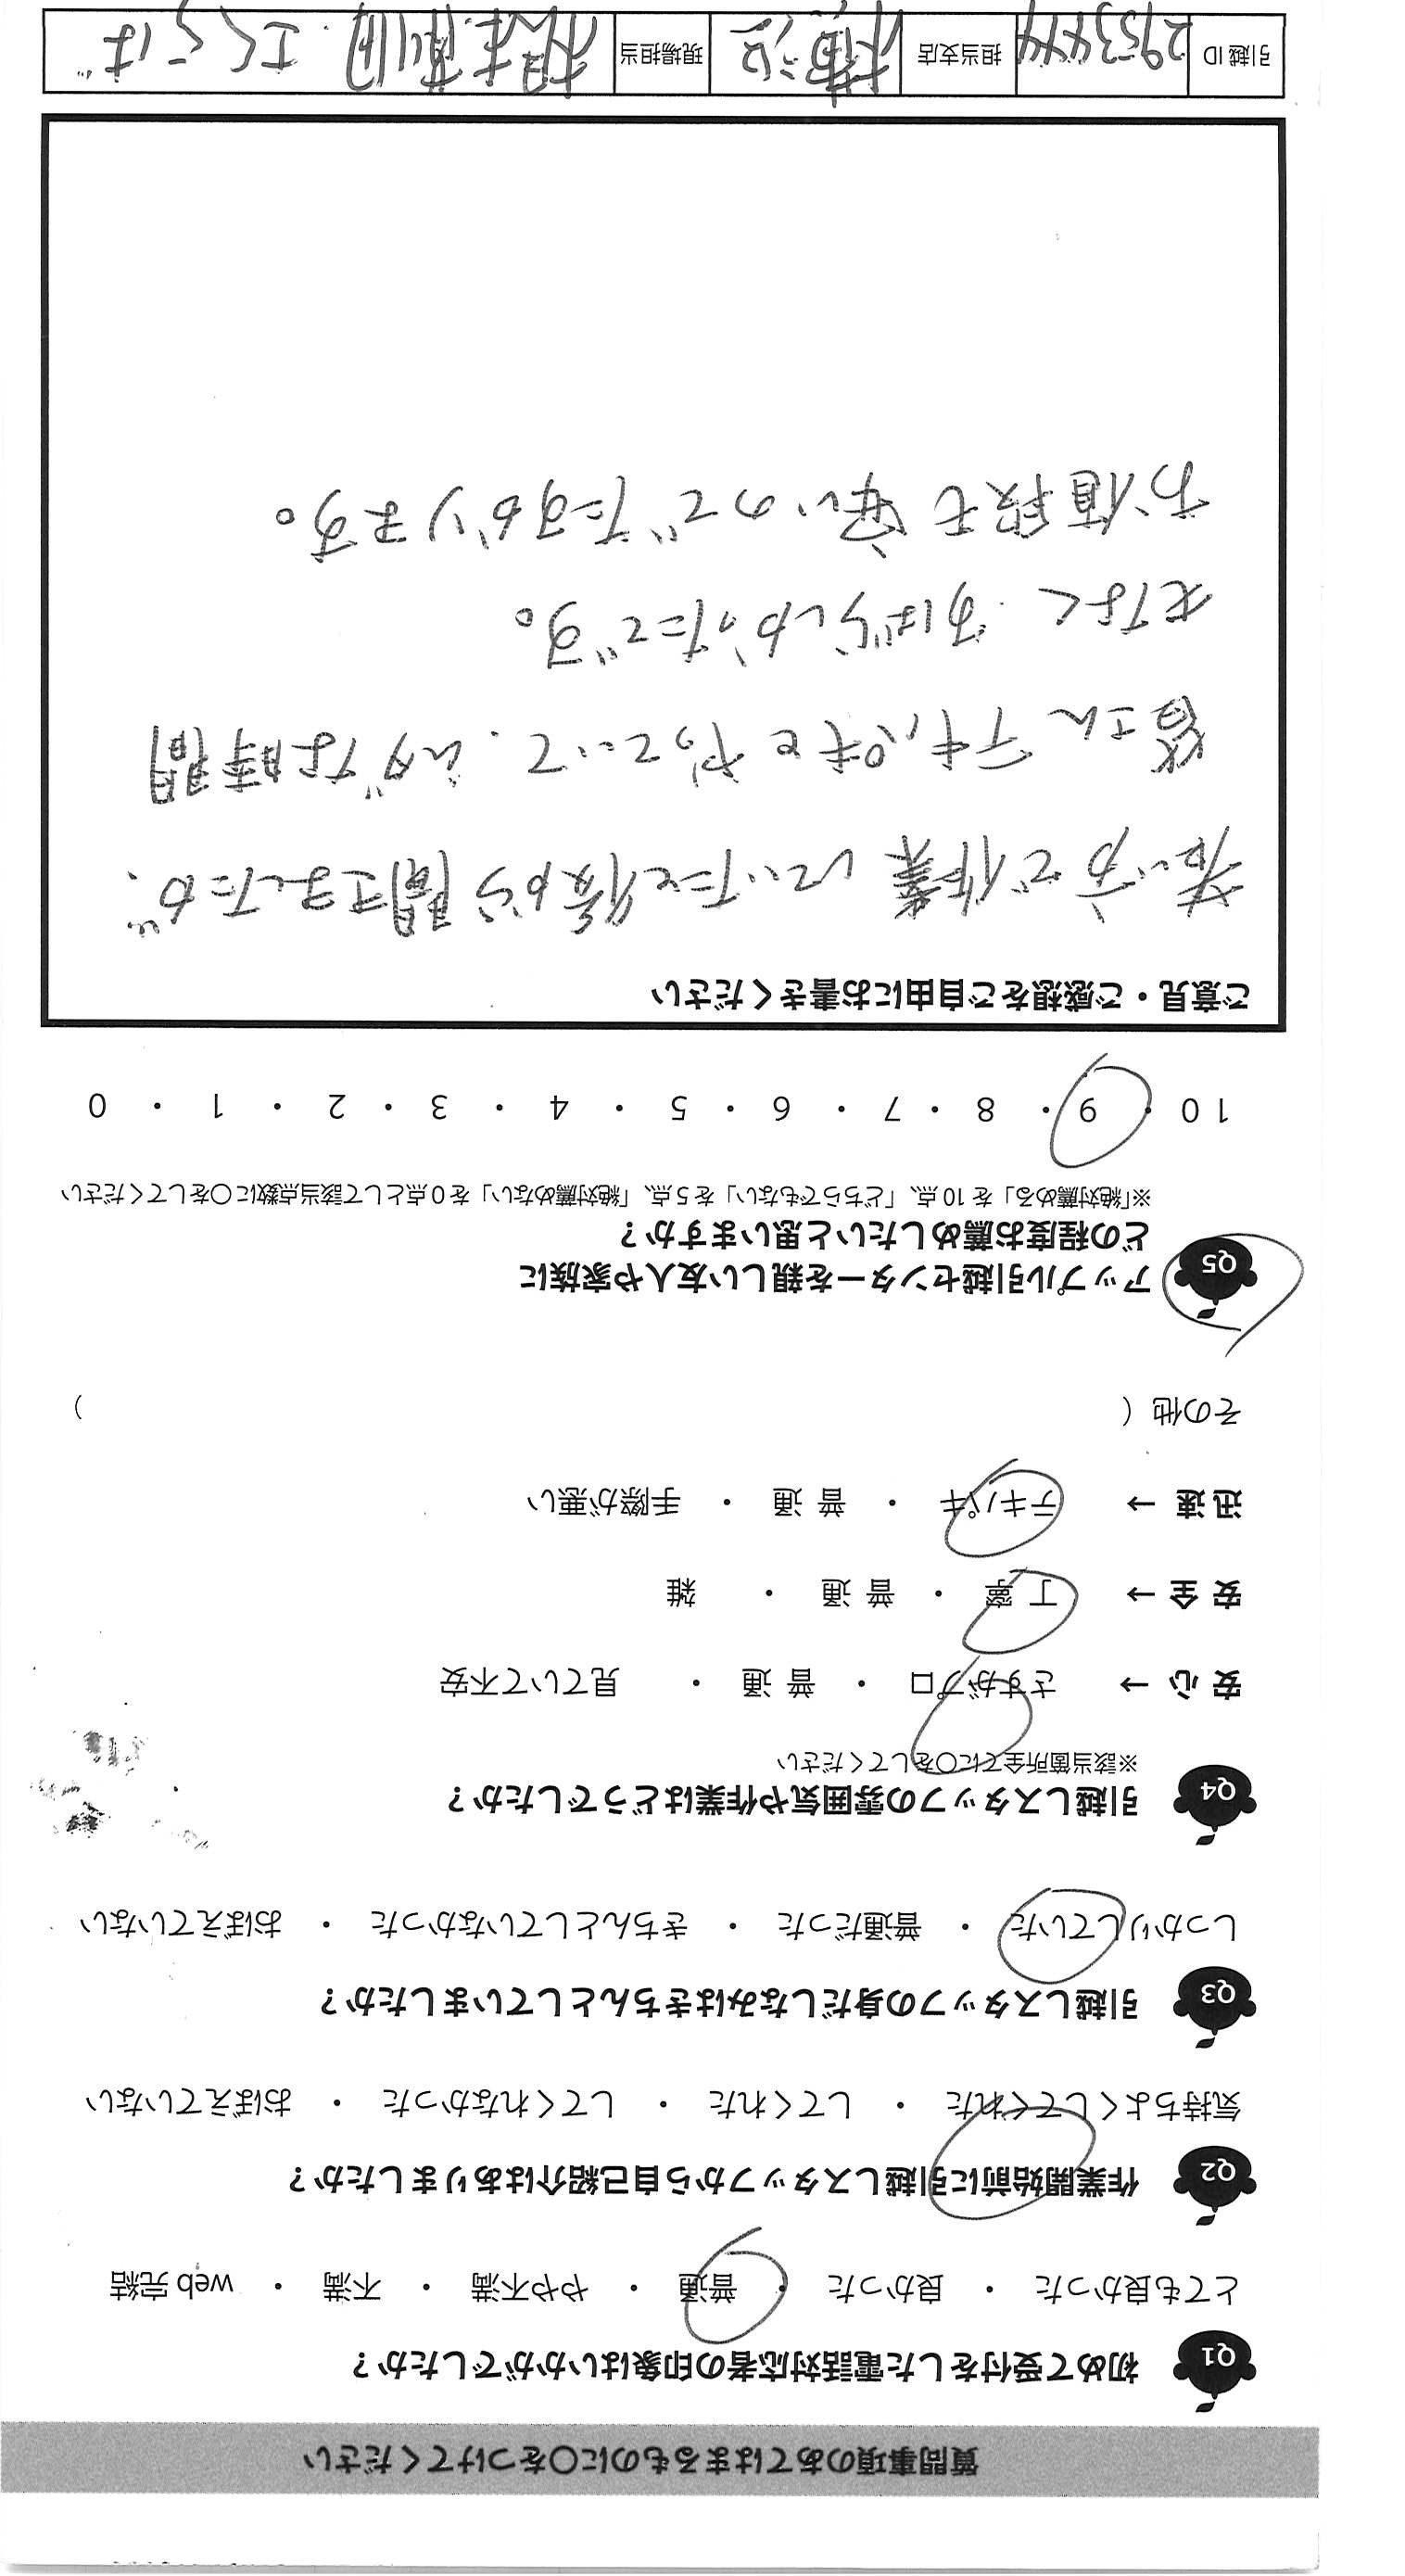 質問事項のあてはまるものに〇をつけてください
Q1 初めて受付をした電話対応者の印象はいかがでしたか?
とても良かった ・ 良かった ・ 普通 ・ やや不満 ・ 不満 ・ web 完結
Q2 作業開始前に引越しスタッフから自己紹介はありましたか?
気持ちよくしてくれた ・ してくれた ・ してくれなかった ・ おぼえていない
Q3 引越しスタッフの身だしなみはきちんとしていましたか?
しっかりしていた ・ 普通だった ・ きちんとしていなかった ・ おぼえていない
Q4 引越しスタッフの雰囲気や作業はどうでしたか?
※該当箇所全てに〇をしてください
安 心 → さすがプロ ・ 普 通 ・ 見ていて不安
安 全 → 丁 寧 ・ 普 通 ・ 雑
迅 速 → テキパキ ・ 普 通 ・ 手際が悪い
その他 ( )
Q5 アップル引越センターを親しい友人や家族に
どの程度お薦めしたいと思いますか?
※「絶対薦める」を 10 点、「どちらでもない」を 5 点、「絶対薦めない」を 0 点として該当点数に〇をしてください
10 ・ 9 ・ 8 ・ 7 ・ 6 ・ 5 ・ 4 ・ 3 ・ 2 ・ 1 ・ 0
ご意見・ご感想をご自由にお書きください
若い方で作業していたと後から聞きましたが、
皆さん テキパキとやっていて、ムダな時間
もなく すばらしかったです。
お値段も安いのでたすかります。
引越 ID 2953444 担当支店 現場担当 さくらば